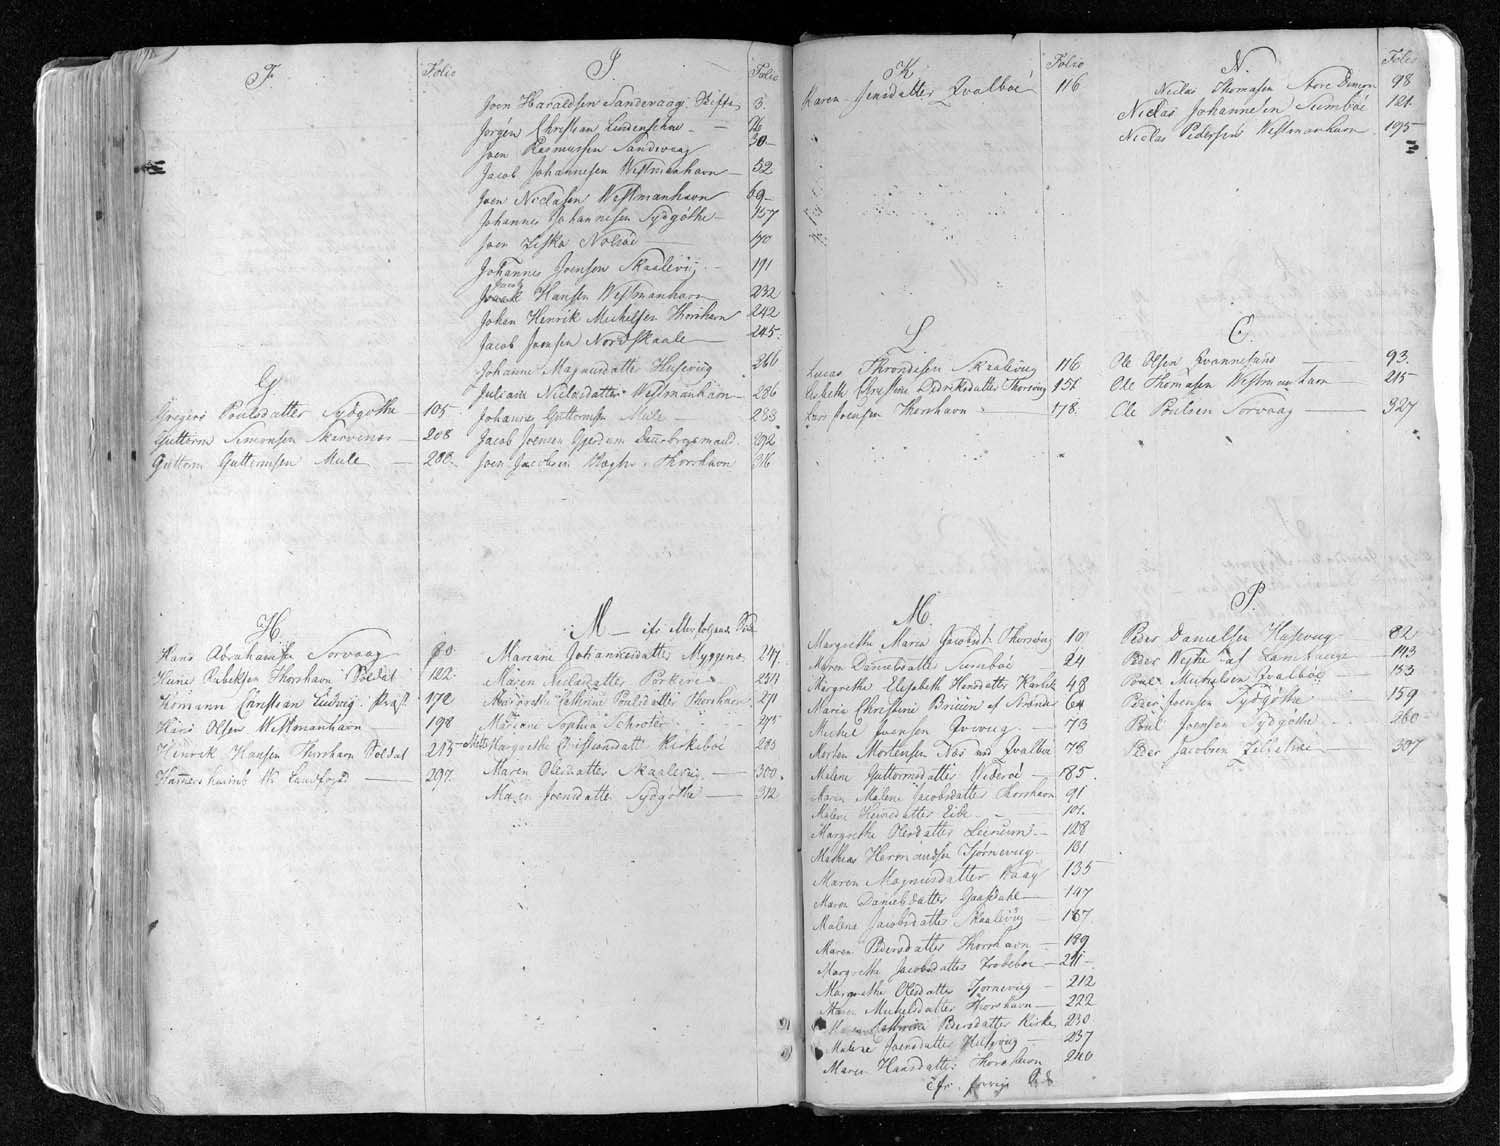 F.
Folio
G
Gregers Poulsdatter Sydgøthe 105.
Guttorm Simonsen Skarvenæs — 208
Guttorm Guttormsen Mule — 288.
H.
Hans Abrahamsen Sorvaag 80.
Thorshavn Soldat 122.
Christian Ludvig 172
Hans Olsen Westmanhavn — 198
Henrik Hansen Thorshavn Soldat 213
Landfoged — 297.
J.
Folio
Joen Haraldsen Sandevaag 3.
Jørgen Christian — 26
Joen Rasmussen Sandevaag 30
Jacob Johannesen Westmanhavn — 52
Joen Niclasen Westmanhavn 69
Johannes Johannesen Sydgøthe — 157
Joen Nolsøe 170
Johannes Joensen Skaalevig — 191
Jacob Hansen Westmanhavn 232
Johan Henrik Michelsen Thorshavn 242
Jacob Joensen Nordskaale — 245.
Johanne Magnusdatter Husevig 266
Juliane Niclasdatter Westmanhavn — 286
Johannes Guttormsen Mule — 288
Jacob Joensen Gjerdum 292
Joen Jacobsen Thorshavn 316
M — cfr. Side
Mariane Johannesdatter Myggenæs 247.
Maren Niclasdatter Porkere 254
Cathrine Poulsdatter Thorshavn 271
Mariane Sophia Schrøter 275
Margrethe Christiansdatter Kirkebøe 283
Maren Olesdatter Skaalevig — 300.
Maren Joensdatter Sydgøthe — 312
K.
Folio
Karen Jensdatter Qvalbøe 116
L
Lucas Throndesen Skaalevig 116
Lisbeth Christine Didriksdatter 151
Lars Joensen Thorshavn 178.
M.
Margrethe Maria Jacobsdt. 10.
Maren Danielsdatter Sumbøe — 24
Margrethe Elisabeth Hansdatter 48
Maria Christine 64
Michel Joensen Qvivig — 73
Morten Mortensen Næs ved Qvalbøe 78
Malene Guttormsdatter Viderøe — 185.
Maren Malene Jacobsdatter Thorshavn 91
Malene Heinesdatter Eide — 101.
Margrethe Olesdatter Leerum — 128
Mathias Hermandsen Tjørnevig — 131
Maren Magnusdatter Vaag 135
Maren Danielsdatter Gaasdahl — 147
Malene Jacobsdatter Skaalevig — 187.
Maren Pedersdatter Thorshavn — 199
Margrethe Jacobsdatter — 211
Margrethe Olesdatter Tjørnevig — 212
Maren Michelsdatter Thorshavn — 222
Cathrine Pedersdatter 230
Malene Joensdatter Husevig — 237
Maren Hansdatter Thorshavn 240
cfr. forrige Side
N.
Folio
Niclas Thomasen Store Dimon 98
Niclas Johannesen Sumbøe 121.
Niclas Pedersen Westmanhavn 195
O.
Ole Olsen Qvannesund — 93.
Ole Thomasen Westmanhavn — 215
Ole Poulsen Sorvaag — 327
P.
Peder Danielsen Husevig — 82
Peder Weyhe af Lamhauge — 143
Poul Michelsen Qvalbøe — 153
Peder Joensen Sydgøthe — 159
Poul Joensen Sydgøthe 260
Peder Jacobsen — 307